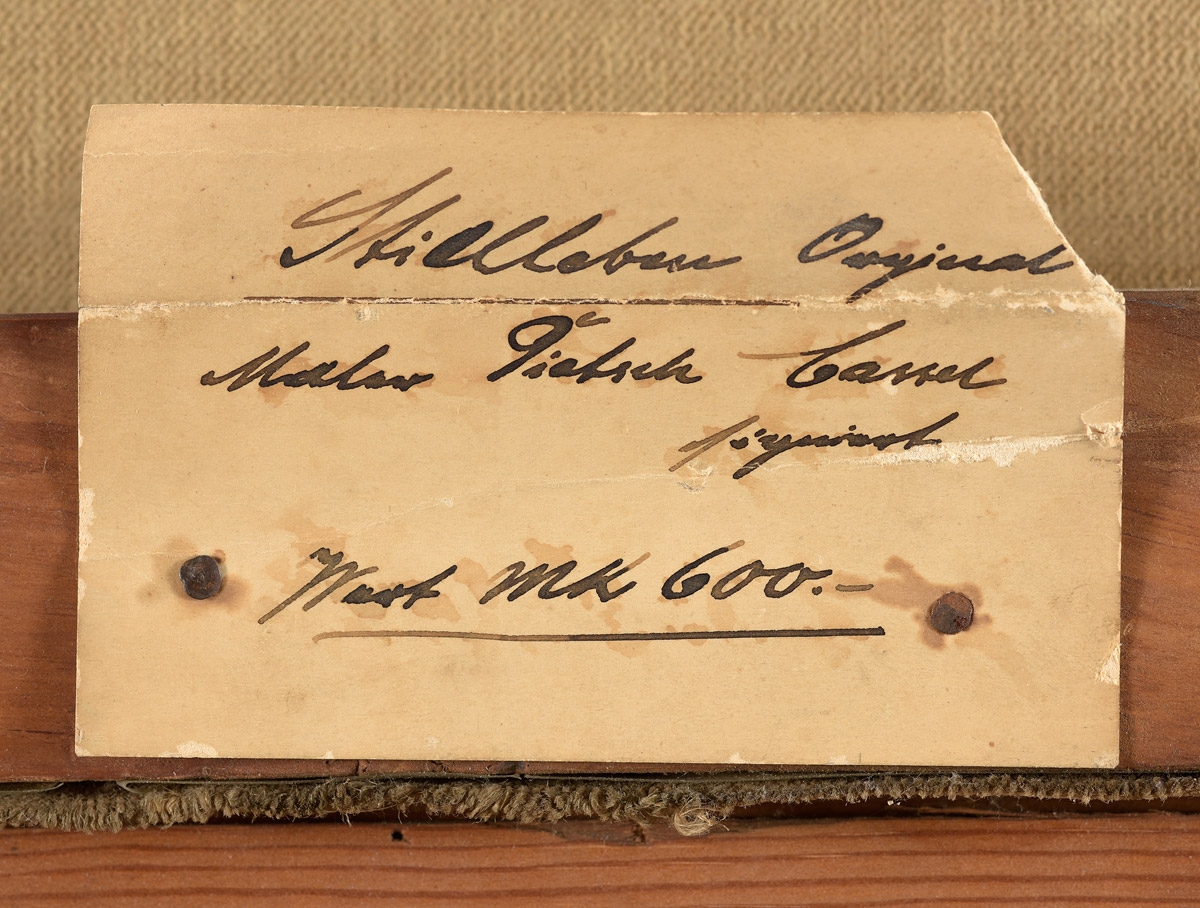 Stillleben Original
Maler Pietsch Cassel
signiert
Wert MK 600.–